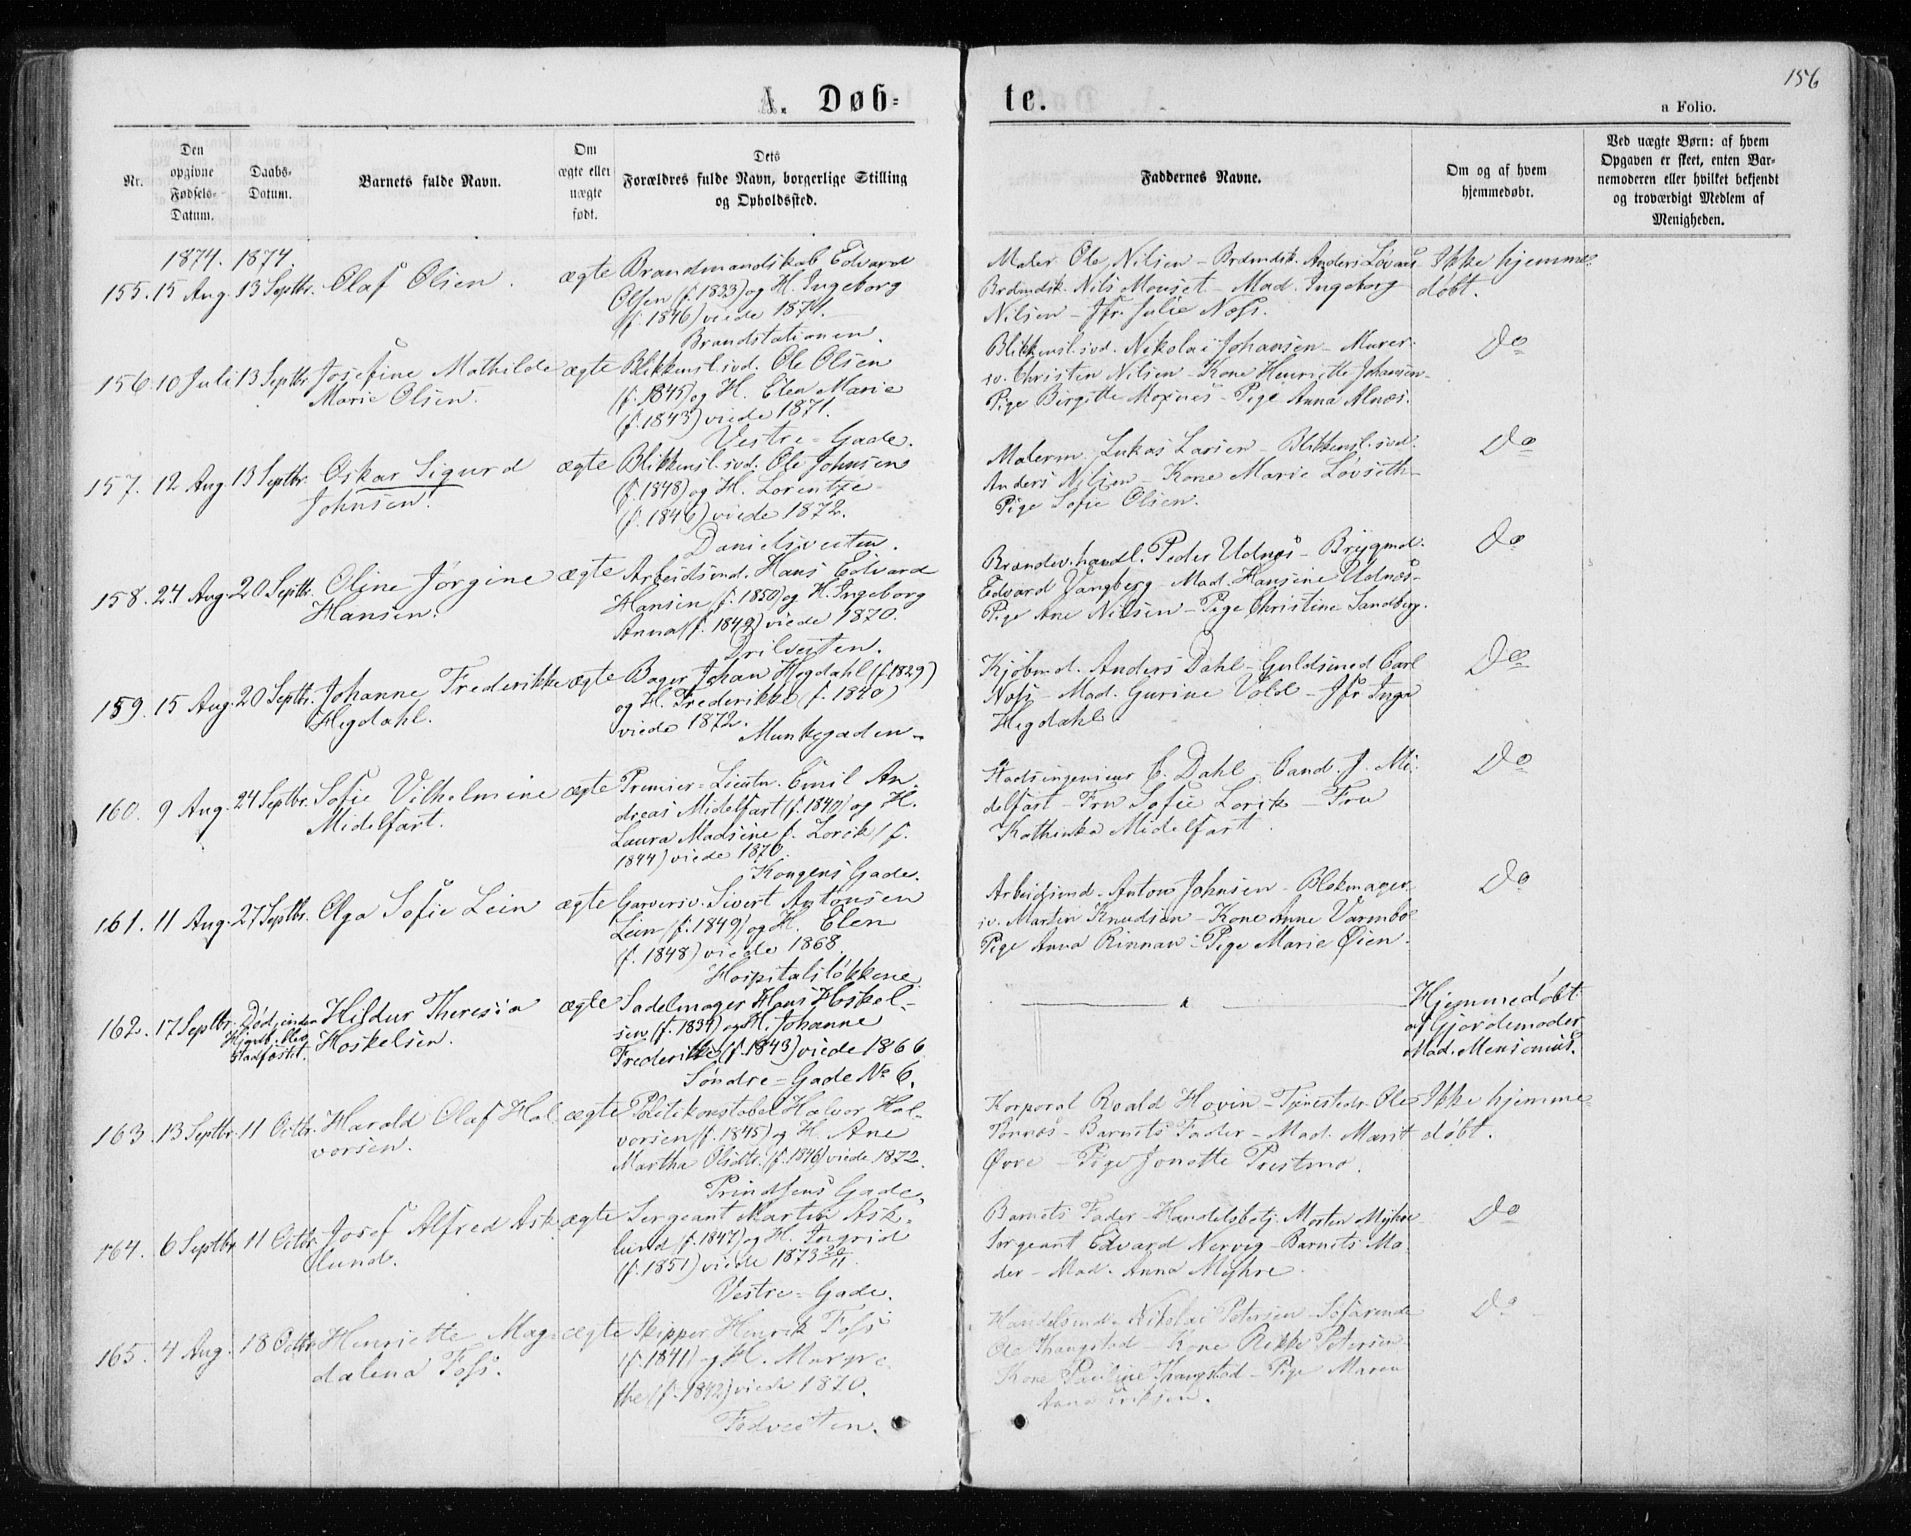 156
A. Døb=
te.
a Folio.
Nr.
Den opgivne Fødsels-Datum.
Daabs-Datum.
Barnets fulde Navn.
Om ægte eller uægte født.
Dets Forældres fulde Navn, borgerlige Stilling og Opholdssted.
Faddernes Navne.
Om og af hvem hjemmedøbt.
Ved uægte Børn: af hvem Opgaven er skeet, enten Barnemoderen eller hvilket bekjendt og troværdigt Medlem af Menigheden.
1874. 1874.
155. 15 Aug. 13 Septbr. Olaf Olsen. ægte Brandmandskab Edvard
Olsen (f. 1833) og H. Ingeborg
(f. 1846) viede 1874.
Brandstationen.
Maler Ole Nilsen – Brdmdsk. Anders Løvaas
Brdmdsk. Nils Mouset – Mad. Ingeborg
Nilsen – Jfr. Julie Næss.
Ikke hjemme-
døbt.
156. 10 Juli 13 Septbr. Josefine Mathilde ægte Blikkensl.svd. Ole Olsen
Marie Olsen. (f. 1845) og H. Elen Marie
(f. 1843) viede 1871.
Vestre=Gade.
Blikkensl.svd. Nikolai Johansen – Murer-
sv. Christen Nilsen – Kone Henriette Johansen –
Pige Birgitte Moxnes – Pige Anna Alnæs.
Do
157. 12 Aug. 13 Septbr. Oskar Sigurd ægte Blikkensl.svd. Ole Johnsen
Johnsen. (f. 1848) og H. Lorentze
(f. 1846) viede 1872.
Danielsveiten.
Malerm. Lukas Larsen – Blikkensl.svd.
Anders Nilsen – Kone Marie Løvseth –
Pige Sofie Olsen.
Do
158. 24 Aug. 20 Septbr. Oline Jørgine ægte Arbeidsmd. Hans Edvard
Hansen. Hansen (f. 1850) og H. Ingeborg
Anna (f. 1849) viede 1870.
Drilveiten.
Brændev.handl. Peder Udnæs – Brygmd.
Edvard Vangberg – Mad. Hansine Udnæs –
Pige Ane Nilsen – Pige Christine Sandberg.
Do
159. 15 Aug. 20 Septbr. Johanne Frederikke ægte Bager Johan Hegdahl (f. 1829)
Hegdahl. og H. Frederikke (f. 1840)
viede 1872.
Munkegaden.
Kjøbmd. Anders Dahl – Guldsmed Carl
Næss – Mad. Gurine Vold – Jfr. Inga
Hegdahl.
Do
160. 9 Aug. 24 Septbr. Sofie Vilhelmine ægte Premier=Lieutn. Emil An-
Midelfart. dreas Midelfart (f. 1840) og H.
Laura Madsine f. Lorck (f.
1844) viede 1870.
Kongens Gade.
Stadsingenieur C. Dahl – Cand. J. Mi-
delfart – Fru Sofie Lorck – Fru
Kathinka Midelfart.
Do
161. 11 Aug. 27 Septbr. Olga Sofie Lein ægte Garversv. Sivert Antonsen
Lein (f. 1849) og H. Elen
(f. 1848) viede 1868.
Hospitalsløkkene.
Arbeidsmd. Anton Johnsen – Blokmager-
sv. Martin Knudsen – Kone Anne Varmbo
Pige Anna Rinnan – Pige Marie Øien.
Do
162. 17 Septbr. Død, inden Hildur Theresia ægte Sadelmager Hans Hoskel-
Hjdb. blev Hoskelsen. sen (f. 1834) og H. Johanne
stadfæstet. Frederikke (f. 1843) viede 1866.
Søndre=Gade No 6.
Hjemmedøbt
af Gjordemoder
Mad. Mensonius.
163. 13 Septbr. 11 Octbr. Harald Olaf Hal- ægte Politikonstabel Halvor Hal-
vorsen. vorsen (f. 1845) og H. Ane
Martha Olsdtr. (f. 1846) viede 1872.
Prindsens Gade.
Korporal Roald Hovin – Tjenestedr. Ole
Tønnes – Barnets Fader – Mad. Marit
Øvre – Pige Jonette Prestmo.
Ikke hjemme-
døbt.
164. 6 Septbr. 11 Octbr. Josef Alfred Ask- ægte Sergeant Martin Ask-
lund. lund (f. 1847) og H. Ingrid
(f. 1851) viede 1873 20/11.
Vestre=Gade.
Barnets Fader – Handelsbetj. Morten Myhre
Sergeant Edvard Nervig – Barnets Mo-
der – Mad. Anna Myhre.
Do
165. 4 Aug. 18 Octbr. Henriette Mag- ægte Skipper Henrik Foss
dalena Foss. (f. 1841) og H. Margre-
the (f. 1842) viede 1870.
Fodveiten.
Handelsmd. Nikolai Petersen – Søfarende
Ole – Kone Rikke Petersen –
Kone Pauline – Pige Maren
Anna Eriksen.
Do